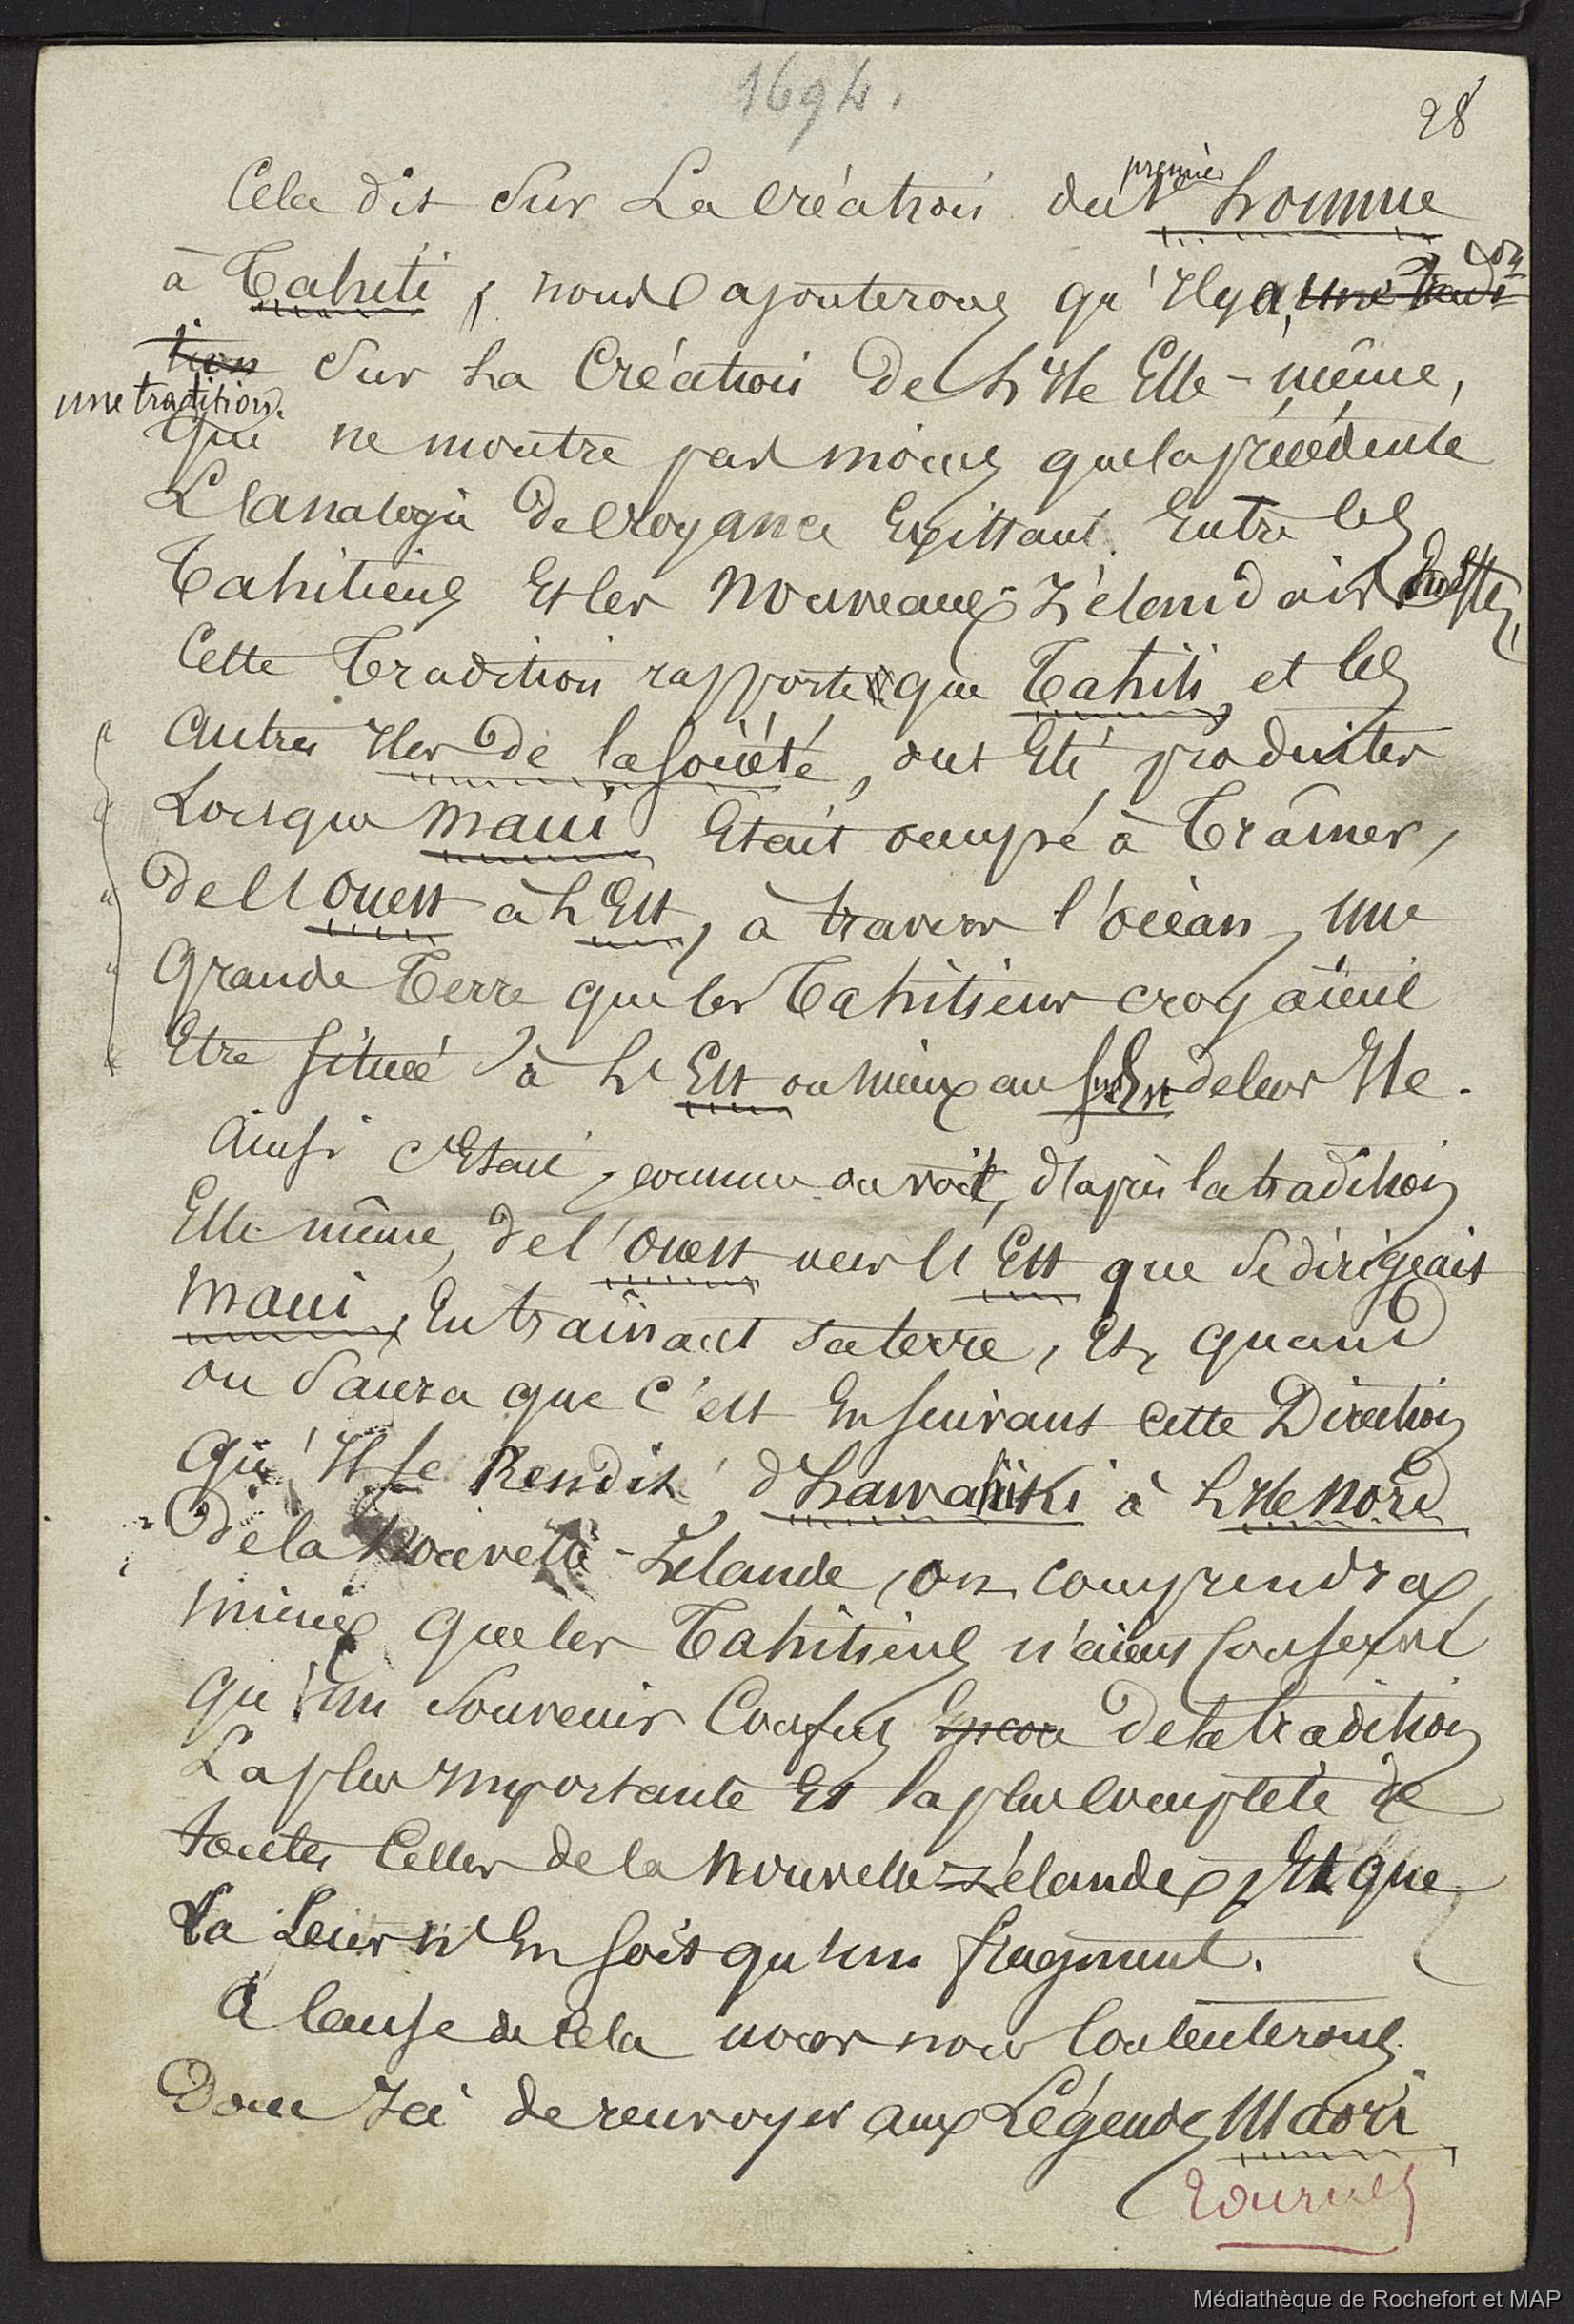 1694.
28
Cela dit Sur La Création du premier homme
à Tahiti, nous ajouterons qu'Il y a, une tradi
tion Sur La Création De L'Ile Elle-même,
une tradition
Qui ne montre pas moins que la précédente
L'analogie De Croyance Existant Entre les
Tahitiens Et les Nouveaux-Zélandais
Cette Tradition rapporte que Tahiti, et les
autres Iles de la Société, ont Eté produites
Lorsque Maui Etait occupé à Traîner,
De l'Ouest à L'Est, à travers l'océan, une
Grande Terre que les Tahitiens croyaient
Etre Située à L'Est ou mieux au de leur Ile.
Ainsi C'Etait, comme on voit, d'après la tradition
Elle même, de l'Ouest vers l'Est que Se dirigeait
Maui, En traînant sa terre, Et, quand
on Saura que C'est En Suivant cette Direction
Qu'Il Se Rendit d'Hawahiki à L'Ile Nord
De la Nouvelle-Zélande, on comprendra
mieux Que les Tahitiens n'aient Conservé
Qu'un Souvenir Confus Encore De la tradition
La plus Importante Et la plus Complète de
toutes Celles de la Nouvelle-Zélande, Et que
La Leur N'En Soit qu'un fragment.
A Cause de Cela nous nous Contenterons
Donc Ici de renvoyer aux Légendes Maori
tournez
Médiathèque de Rochefort et MAP